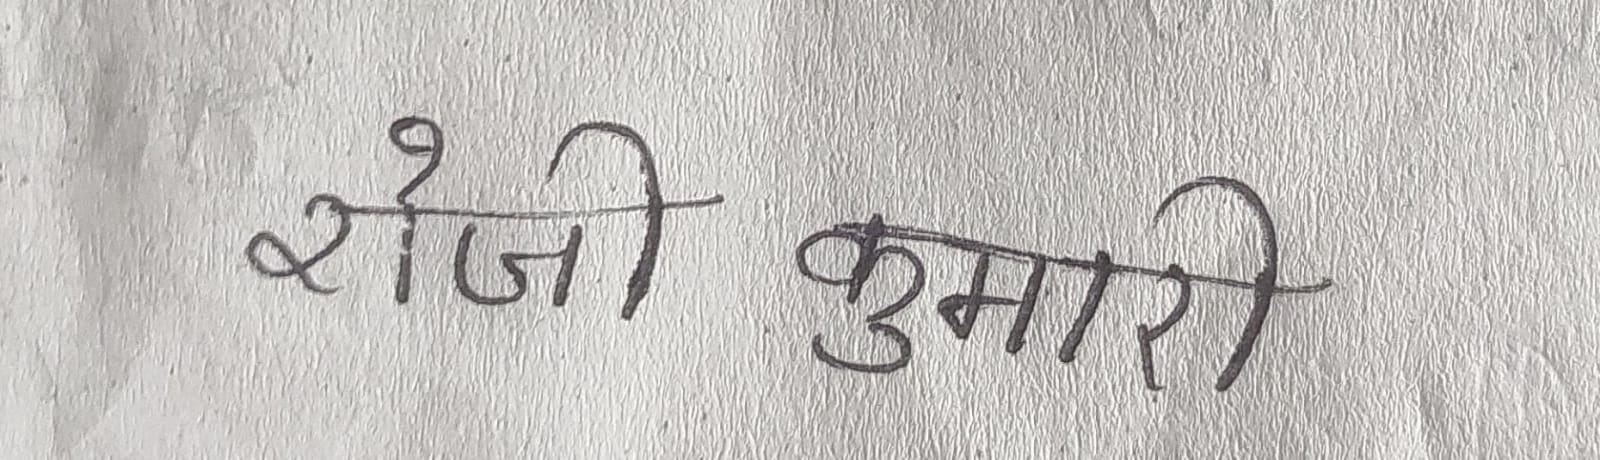 रोजी कुमारी